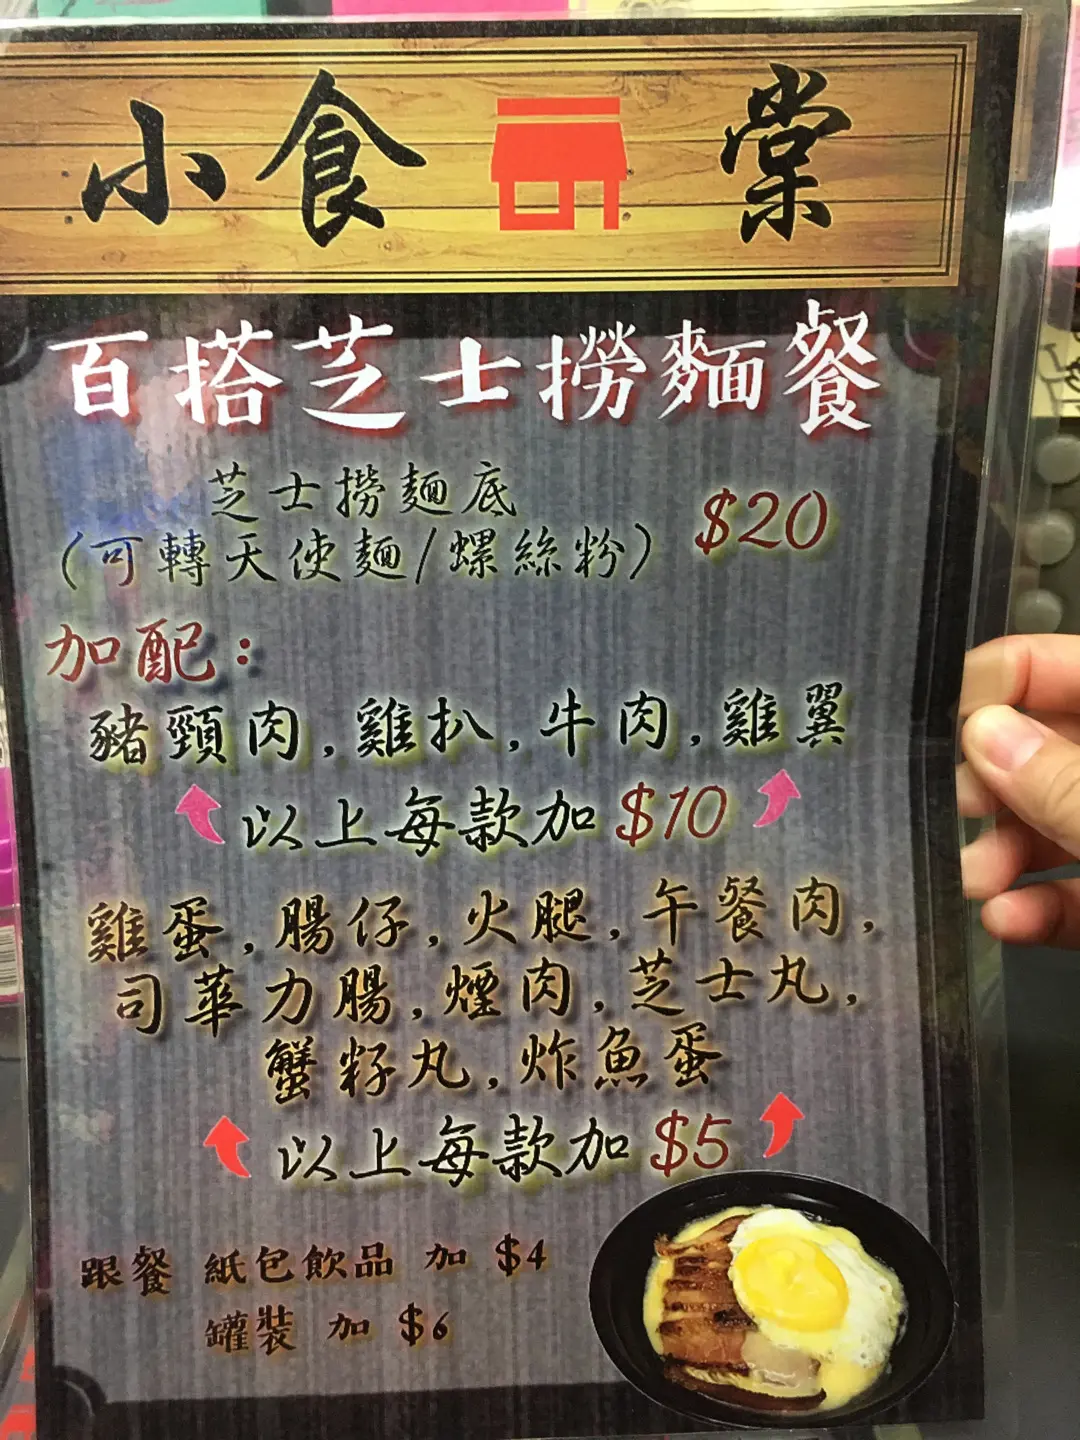 小食棠
百搭芝士撈麵餐
芝士撈麵底
(可轉天使麵/螺絲粉) $20
加配:
豬頸肉,雞扒,牛肉,雞翼
以上每款加 $10
雞蛋,腸仔,火腿,午餐肉,
司華力腸,煙肉,芝士丸,
蟹籽丸,炸魚蛋
以上每款加 $5
跟餐 紙包飲品 加 $4
罐裝 加 $6